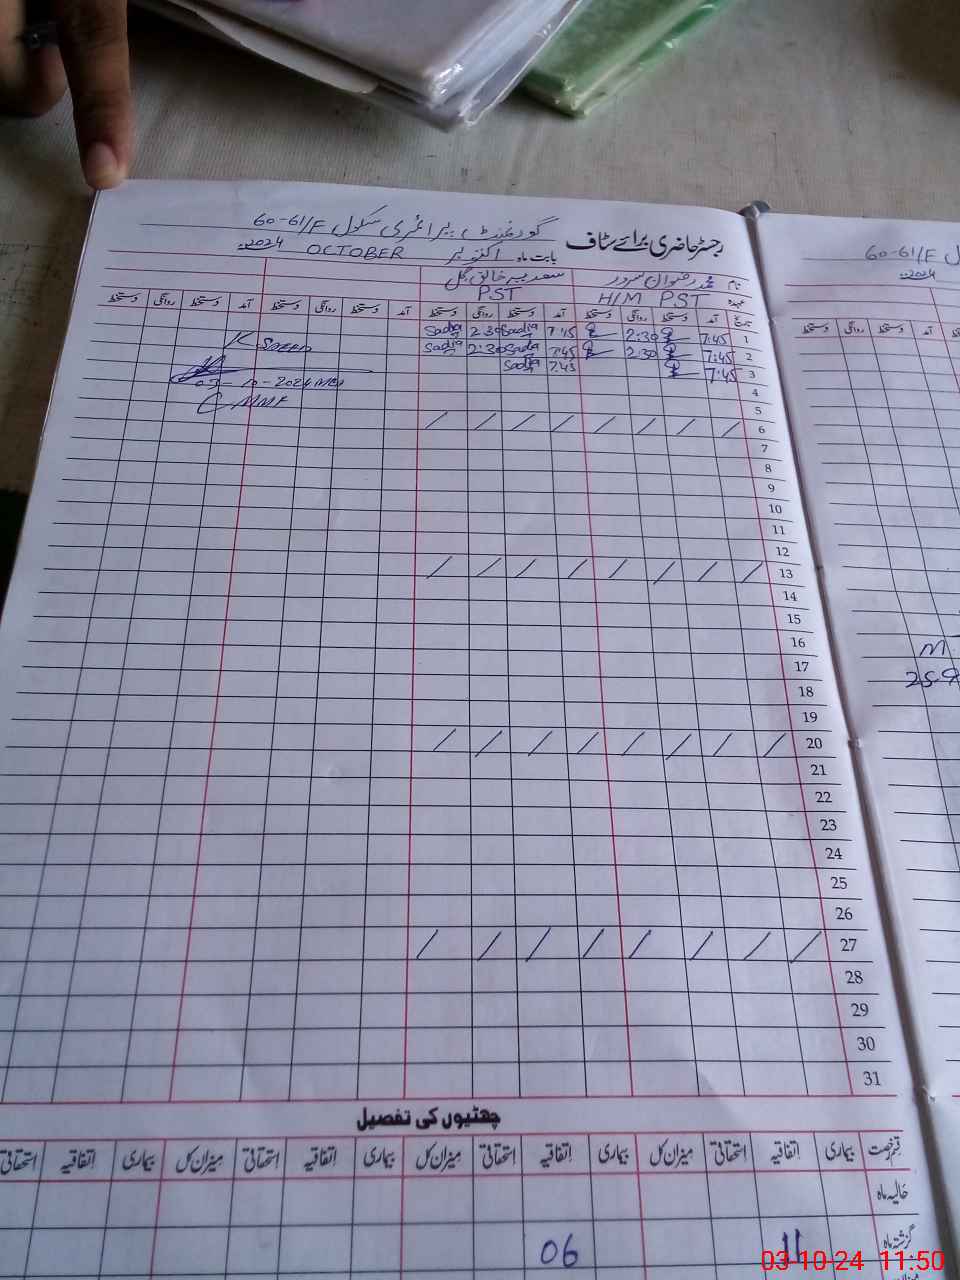 رجسٹر حاضری برائے سٹاف گورنمنٹ پرائمری سکول 60-61/F
بابت ماہ اکتوبر OCTOBER 2024ء
نام محمد رضوان سرور سعدیہ خالق گل
عہدہ H/M PST PST
تاریخ آمد دستخط روانگی دستخط آمد دستخط روانگی دستخط آمد دستخط روانگی دستخط آمد دستخط روانگی دستخط
1 7:45 2:30 7:45 Sadia 2:30 Sadia
2 7:45 2:30 7:45 Sadia 2:30 Sadia
3 7:45 7:45 Sadia
4
5
6 / / / / / / / /
7
8
9
10
11
12
13 / / / / / / / /
14
15
16
17
18
19
20 / / / / / / / /
21
22
23
24
25
26
27 / / / / / / / /
28
29
30
31
چھٹیوں کی تفصیل
قسم رخصت بیماری اتفاقیہ استحقاقی میزان کل بیماری اتفاقیہ استحقاقی میزان کل بیماری اتفاقیہ استحقاقی میزان کل بیماری اتفاقیہ استحقاقی
حالیہ ماہ
گزشتہ ماہ 11 06
60-61/F
2024ء
دستخط روانگی دستخط آمد
03-10-24 11:50